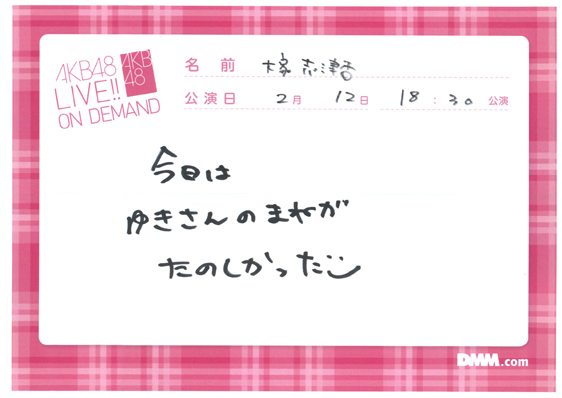 AKB48
LIVE!!
ON DEMAND
AKB
48
名前 大家志津香
公演日 2月 12日 18:30 公演
今日は
ゆきさんのまねが
たのしかった
DMM.com